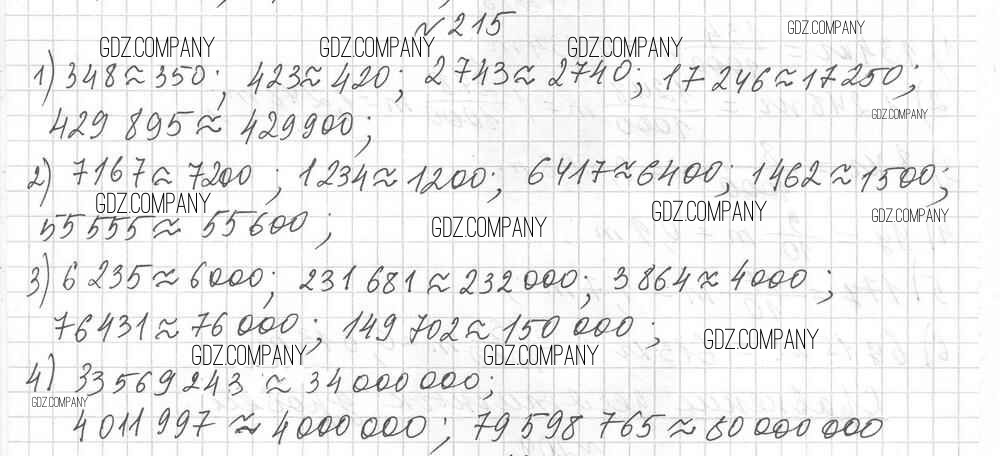 № 215
GDZ.COMPANY GDZ.COMPANY GDZ.COMPANY GDZ.COMPANY
1) 348 ≈ 350; 423 ≈ 420; 2743 ≈ 2740; 17 246 ≈ 17 250;
GDZ.COMPANY
429 895 ≈ 429 900;
2) 7167 ≈ 7200; 1234 ≈ 1200; 6417 ≈ 6400; 1462 ≈ 1500;
GDZ.COMPANY GDZ.COMPANY GDZ.COMPANY GDZ.COMPANY
55 555 ≈ 55 600;
3) 6 235 ≈ 6000; 231 681 ≈ 232 000; 3864 ≈ 4000;
76 431 ≈ 76 000; 149 702 ≈ 150 000;
GDZ.COMPANY GDZ.COMPANY GDZ.COMPANY
4) 33 569 243 ≈ 34 000 000;
GDZ.COMPANY
4 011 997 ≈ 4 000 000; 79 598 765 ≈ 80 000 000